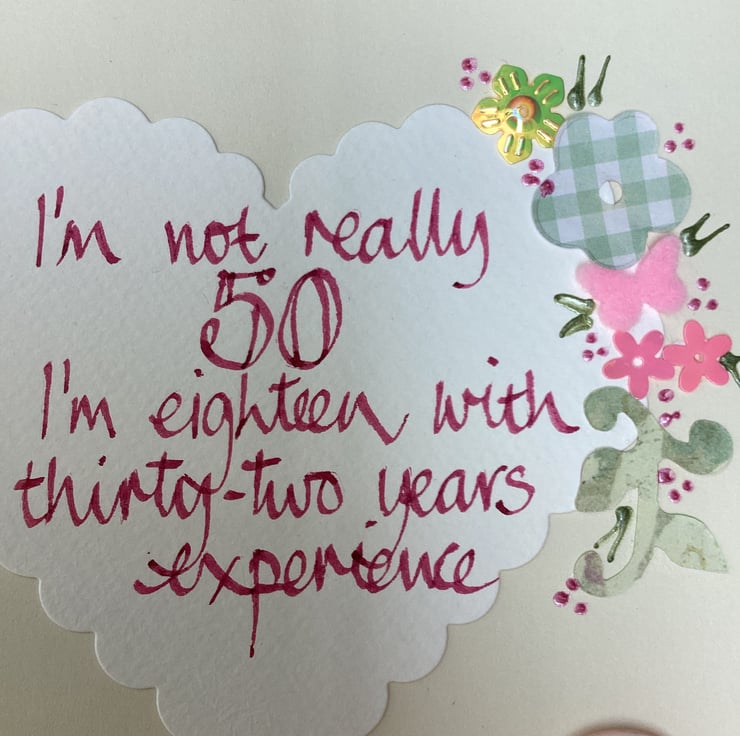 I'm not really
50
I'm eighteen with
thirty-two years
experience